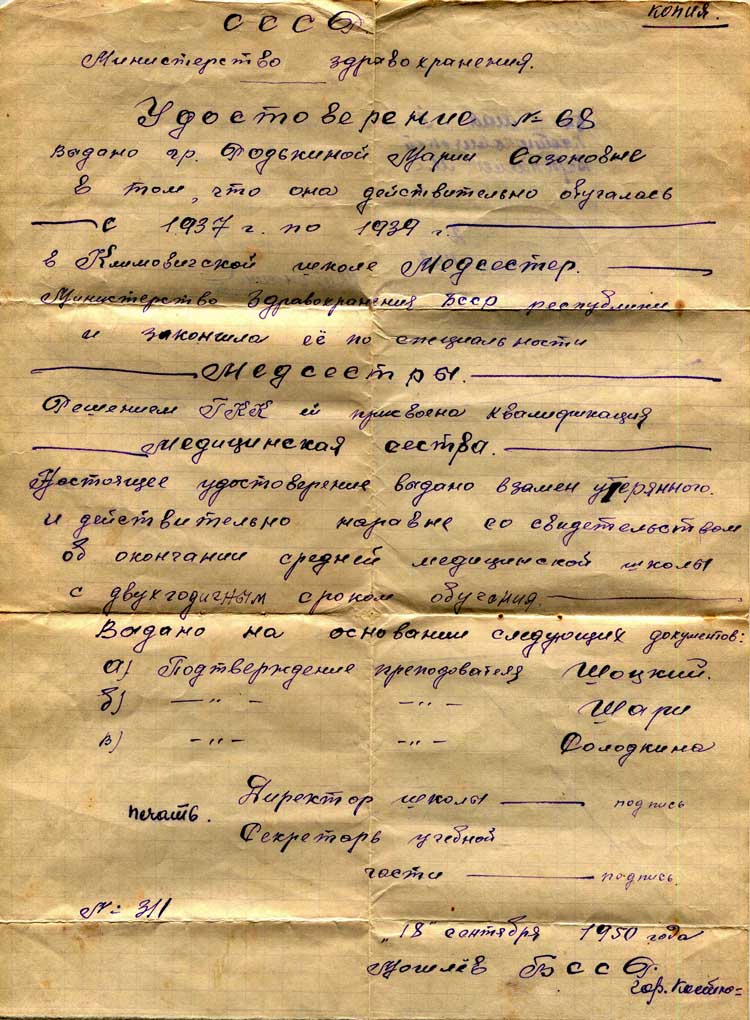 копия.
СССР
Министерство здравохранения.
Удостоверение № 68
Выдано гр. Федькиной Марии Сазоновне
в том, что она действительно обучалась
с 1937 г. по 1939 г.
в Климовичской школе Медсестер.
Министерство Здравохранения БССР республики
и закончила её по специальности
Медсестры.
Решением ГКК ей присвоена квалификация
медицинская сестра.
Настоящее удостоверение выдано взамен утерянного.
и действительно наравне со свидетельством
об окончании средней медицинской школы
с двухгодичным сроком обучения.
Выдано на основании следующих документов:
а) Подтверждение преподователя Шоцкий.
б) — " — — " — Шари
в) — " — — " — Солодкина
Директор школы — подпись
печать.
Секретарь учебной
части — подпись.
№ 311
"18" сентября 1950 года
Могилёв БССР.
гор. Костю=